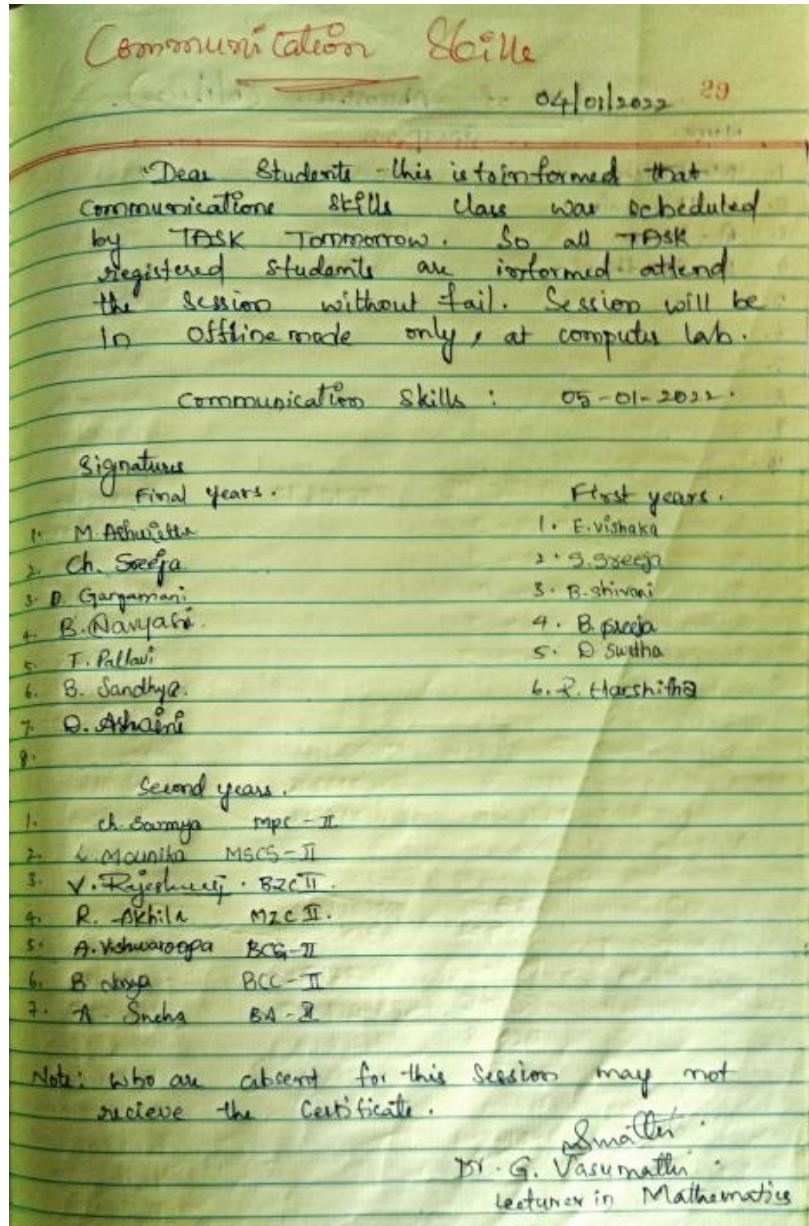 Communication Skills
04/01/2022 29
"Dear Students this is to informed that
communications skills class was scheduled
by TASK Tommorrow. So all TASK
registered students are informed attend
the session without fail. Session will be
in offline mode only, at computer lab.
Communication Skills : 05-01-2022.
Signatures
Final years. First years.
1. M. 1. E. vishaka
2. Ch. Sreeja 2. S. Sreeja
3. D. Gangamani 3. B. shivani
4. B. Navyasri 4. B. sreeja
5. T. Pallavi 5. D Swetha
6. B. Sandhya. 6. R. Harshitha
7. D. Ashwini
8.
Second years.
1. ch. Sowmya MPC - II
2. Mounika MSCS - II
3. V. Rajeshwari . BZC II.
4. R. Akhila MZC II.
5. A. Vishwaroopa BCG-II
6. B BCC - II
7. A. Sneha BA - II
Note: who are absent for this session may not
recieve the Certificate.
Dr. G. Vasumathi
Lecturer in Mathematics